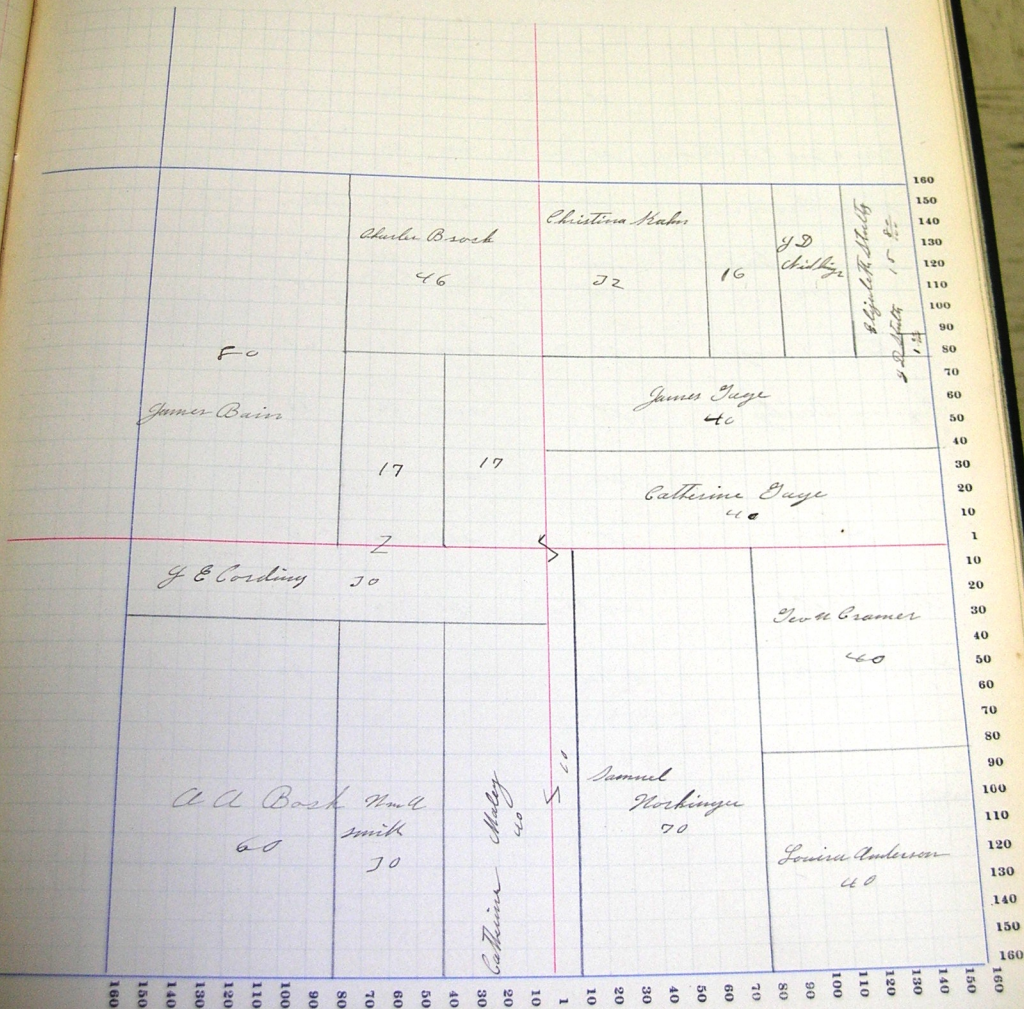 Charles Brock
46
Christina Kahn
32
16
J D
Elizabeth Shultz
15
80
James Bain
James Guye
40
17
17
Catherine Guye
40
J E Cording 30
Geo W Cramer
40
A A Bosh
60
Wm A
Smith
30
Catherine Maley
40
10
Samuel
Noshinger
70
Louisa Anderson
40
160
150
140
130
120
110
100
90
80
70
60
50
40
30
20
10
1
10
20
30
40
50
60
70
80
90
100
110
120
130
140
150
160
160 150 140 130 120 110 100 90 80 70 60 50 40 30 20 10 1 10 20 30 40 50 60 70 80 90 100 110 120 130 140 150 160